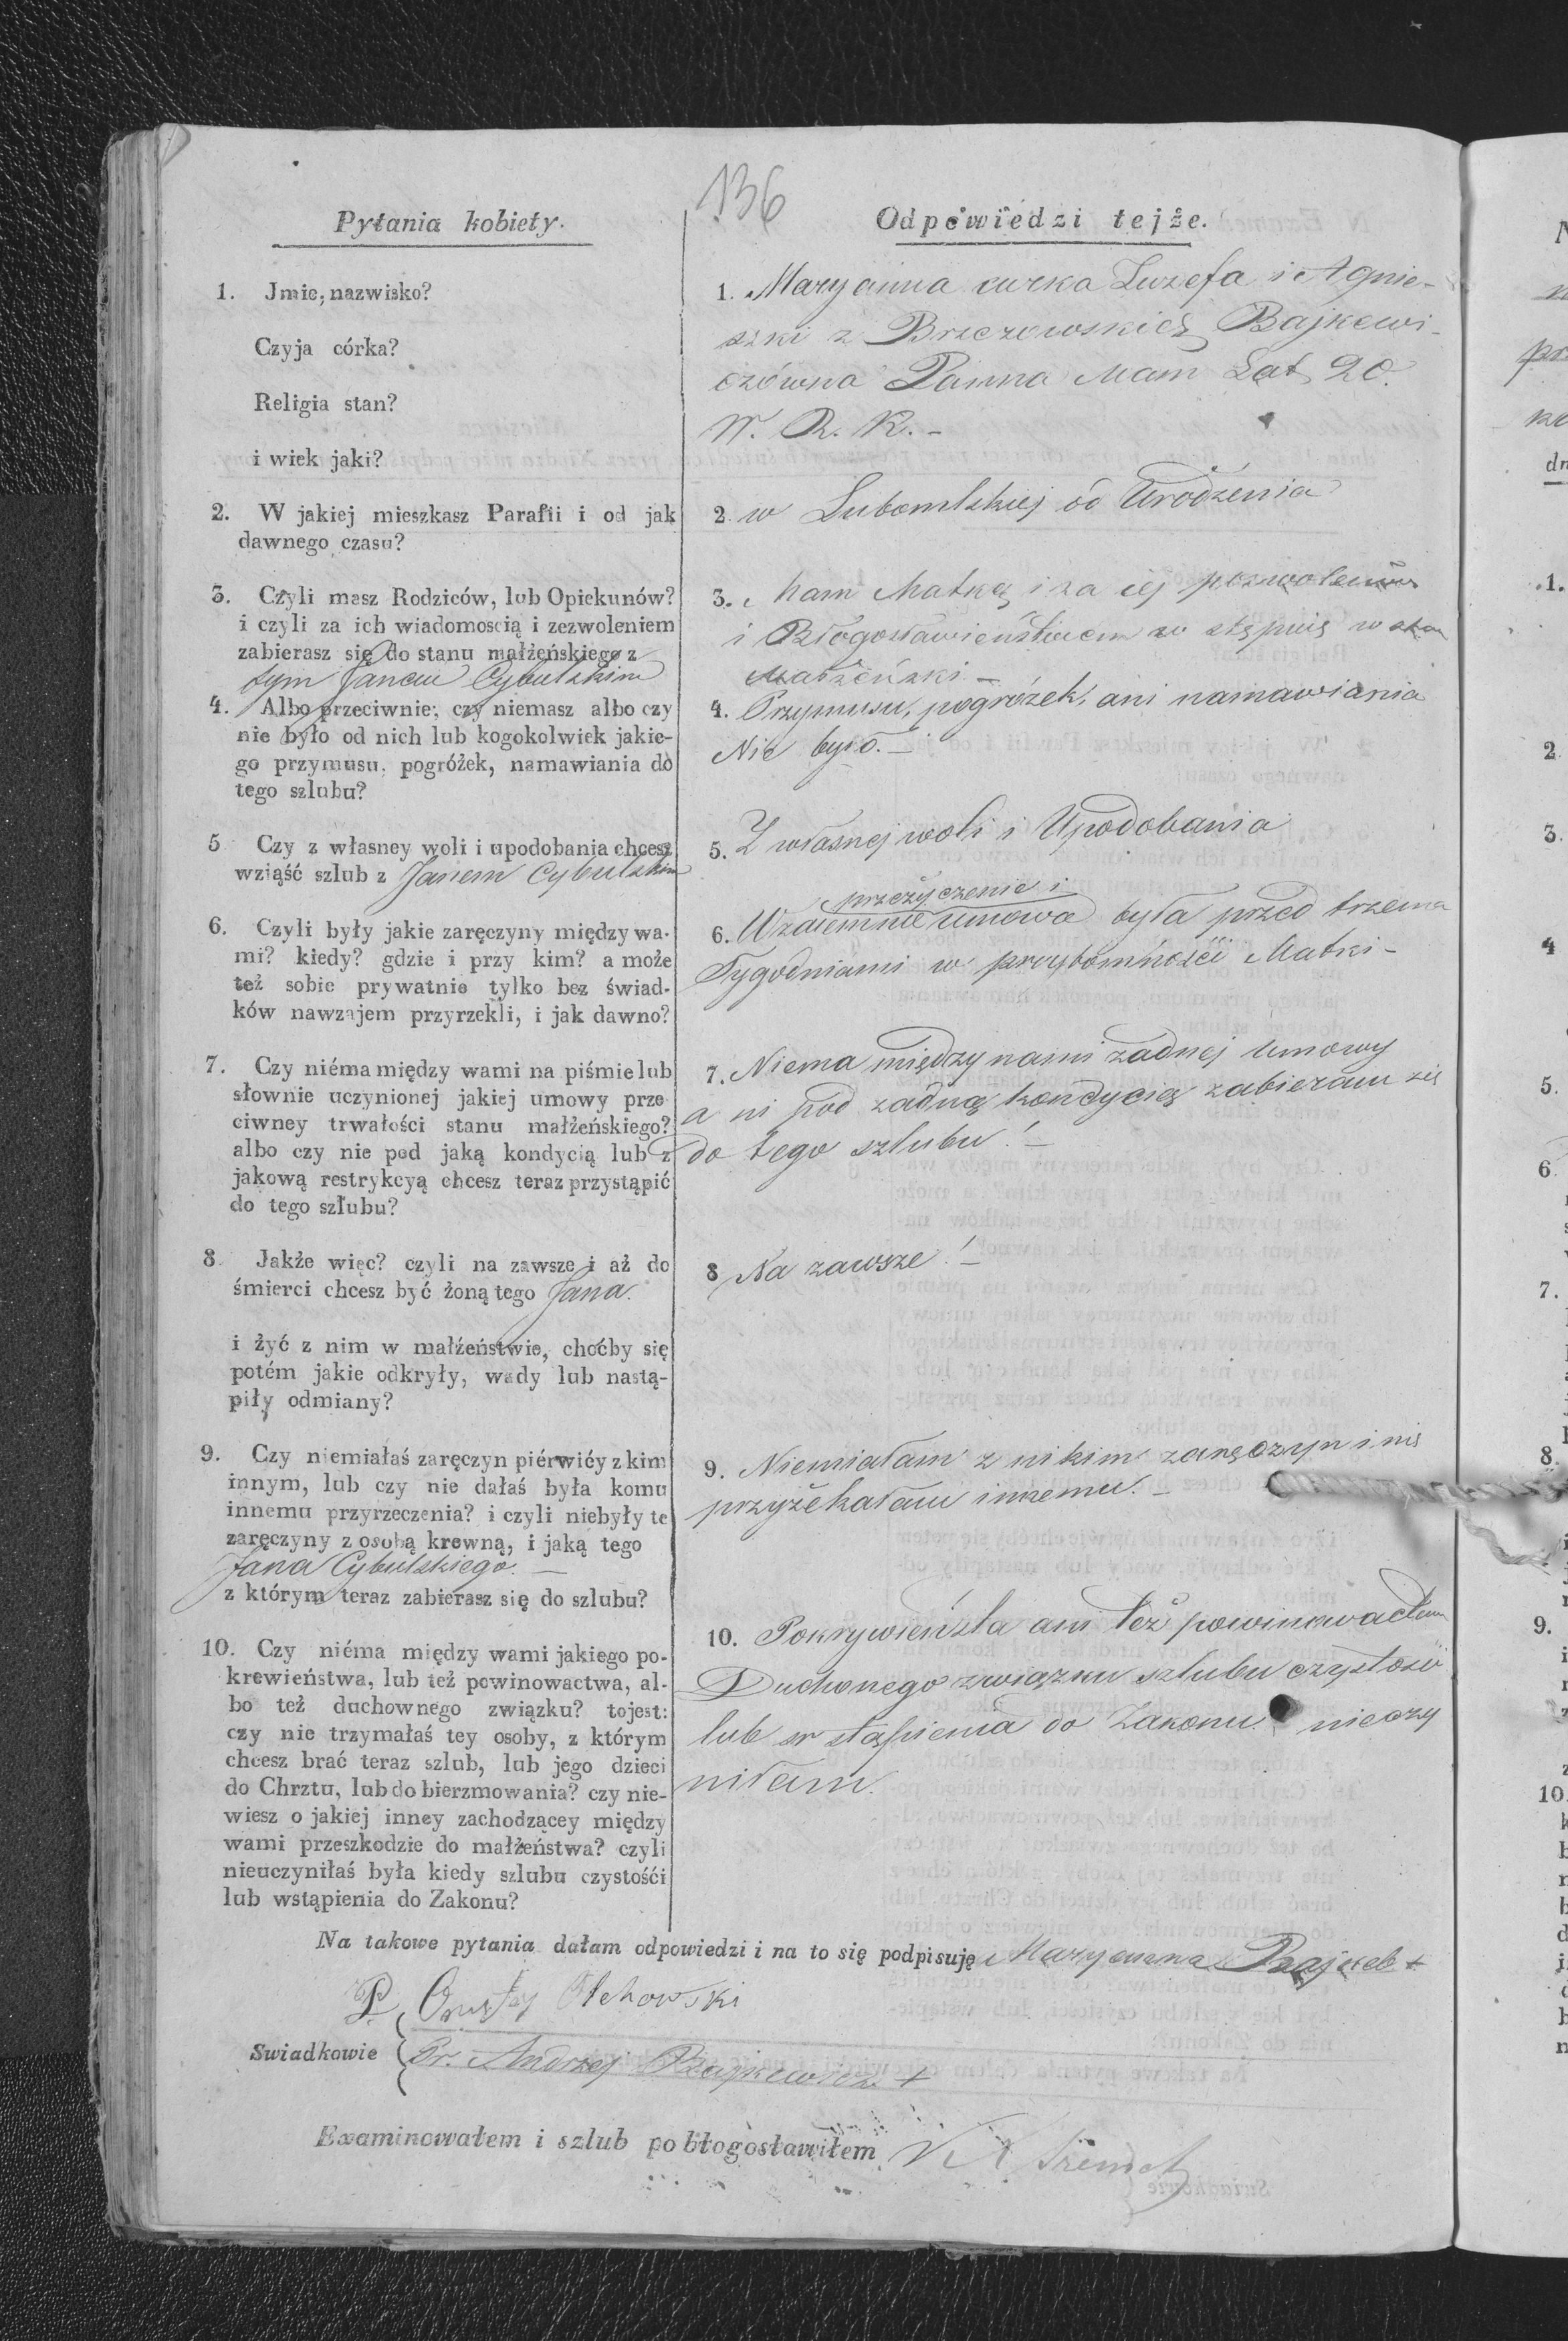 136
Pytania kobiety.
1. Jmie, nazwisko?
Czyja córka?
Religia stan?
i wiek jaki?
2. W jakiej mieszkasz Parafii i od jak
dawnego czasu?
3. Czyli masz Rodziców, lub Opiekunów?
i czyli za ich wiadomoscią i zezwoleniem
zabierasz się do stanu małżeńskiego z
tym Janem Cybulskim
4. Albo przeciwnie; czy niemasz albo czy
nie było od nich lub kogokolwiek jakie-
go przymusu, pogróżek, namawiania do
tego szlubu?
5 Czy z własney woli i upodobania chcesz
wziąść szlub z Janem Cybulskim
6. Czyli były jakie zaręczyny między wa-
mi? kiedy? gdzie i przy kim? a może
też sobie prywatnie tylko bez świad-
ków nawzajem przyrzekli, i jak dawno?
7. Czy niéma między wami na piśmie lub
słownie uczynionej jakiej umowy prze
ciwney trwałości stanu małżeńskiego?
albo czy nie pod jaką kondycią lub z
jakową restrykcyą chcesz teraz przystąpić
do tego szlubu?
8 Jakże więc? czyli na zawsze i aż do
śmierci chcesz być żoną tego Jana.
i żyć z nim w małżeństwie, choćby się
potém jakie odkryły, wady lub nastą-
piły odmiany?
9. Czy niemiałaś zaręczyn piérwićy z kim
innym, lub czy nie dałaś była komu
innemu przyrzeczenia? i czyli niebyły te
zaręczyny z osobą krewną, i jaką tego
Jana Cybulskiego. —
z którym teraz zabierasz się do szlubu?
10. Czy niéma między wami jakiego po-
krewieństwa, lub też powinowactwa, al-
bo też duchownego związku? tojest:
czy nie trzymałaś tey osoby, z którym
chcesz brać teraz szlub, lub jego dzieci
do Chrztu, lub do bierzmowania? czy nie-
wiesz o jakiej inney zachodzącey między
wami przeszkodzie do małżeństwa? czyli
nieuczyniłaś była kiedy szlubu czystośći
lub wstąpienia do Zakonu?
Odpowiedzi tejże.
1. Maryanna curka Iuzefa i Agnie-
szki z Brzezowskich Bajkewi-
czówna Panna Mam Lat 20.
W. R. K. -
2. w Lubomlskiej od Urodzenia
3. Mam Matkę i za jej pozwoleniem
i Błogosławieństwem w stępuię w stan
Małżeński —
4. Przymusu, pogróżek, ani namawiania
Nie było. —
5. Z własnej woli i Upodobania
przeżyczenie i
6. Wzaiemnie umowa była przed trzema
Tygodniami w przytomności Matki -
7. Niema między nami żadnej Umowy
a ni pod żadną kondycią zabieram się
do tego szlubu! —
8 Na zawsze! —
9. Niemiałam z nikim zaręczyn i nie
przyżekałam innemu. —
10. Pokrywieństa ani Też powinowactwa
Duchonego związku szlubu czystosci
lub w stąpienia do Zakonu nieczy
niłam.
Na takowe pytania dałam odpowiedzi i na to się podpisuję Maryanna +
P. Olchowski
Swiadkowie Andrzej Bajkewicz +
Examinowałem i szlub pobłogosławiłem